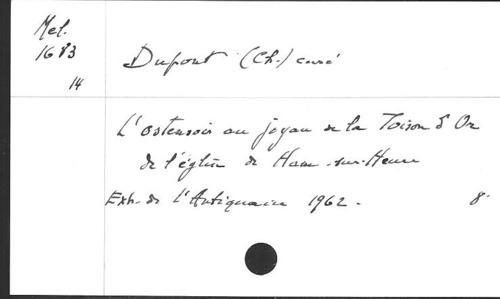 Mel.
1683
14
Dupont (Ch.) curé
L'ostensoir au joyau de la Toison d'Or
de l'église de Ham-sur-Heure
Extr. de l'Antiquaire 1962.
8°